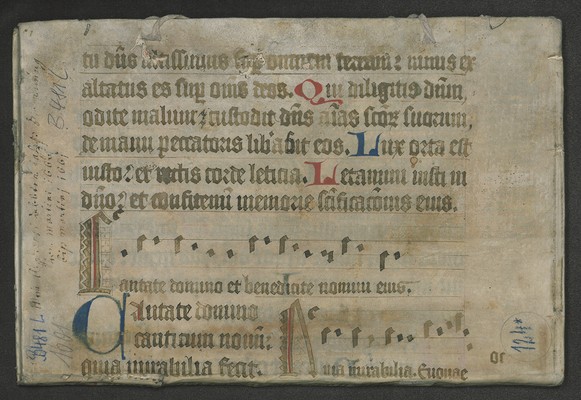 tu dn̄s altissimus sup̄ omnem terram ⁊ nimis ex
altatus es sup̄ om̄s deos. Qui diligitis dn̄m,
odite malum ⁊ custodit dn̄s aīas scōꝝ suorum,
de manu peccatoris lib̄abit eos. Lux orta est
iusto ⁊ et rectis corde leticia. Letamini iusti in
dn̄o ⁊ et confitemī memorie sc̄ificacōnis eius.
Cantate domino et benedicite nomini eius.
Cantate domino
canticum novū
quia mirabilia fecit. Quia mirabilia. Euouae
or
124*